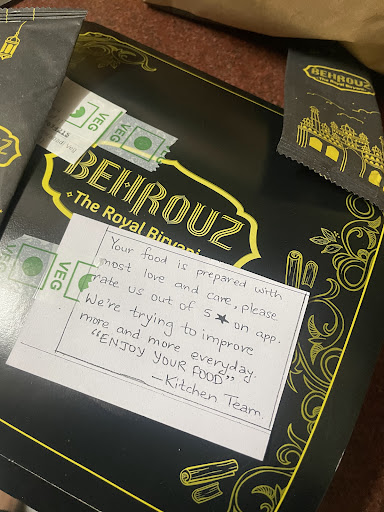 BEHROUZ
The Royal Biryani
VEG
VEG
BEHROUZ
The Royal Biryani
VEG
VEG
Your food is prepared with
most love and care, please
rate us out of 5 ★ on app.
We're trying to improve
more and more everyday.
"ENJOY YOUR FOOD"
—Kitchen Team.